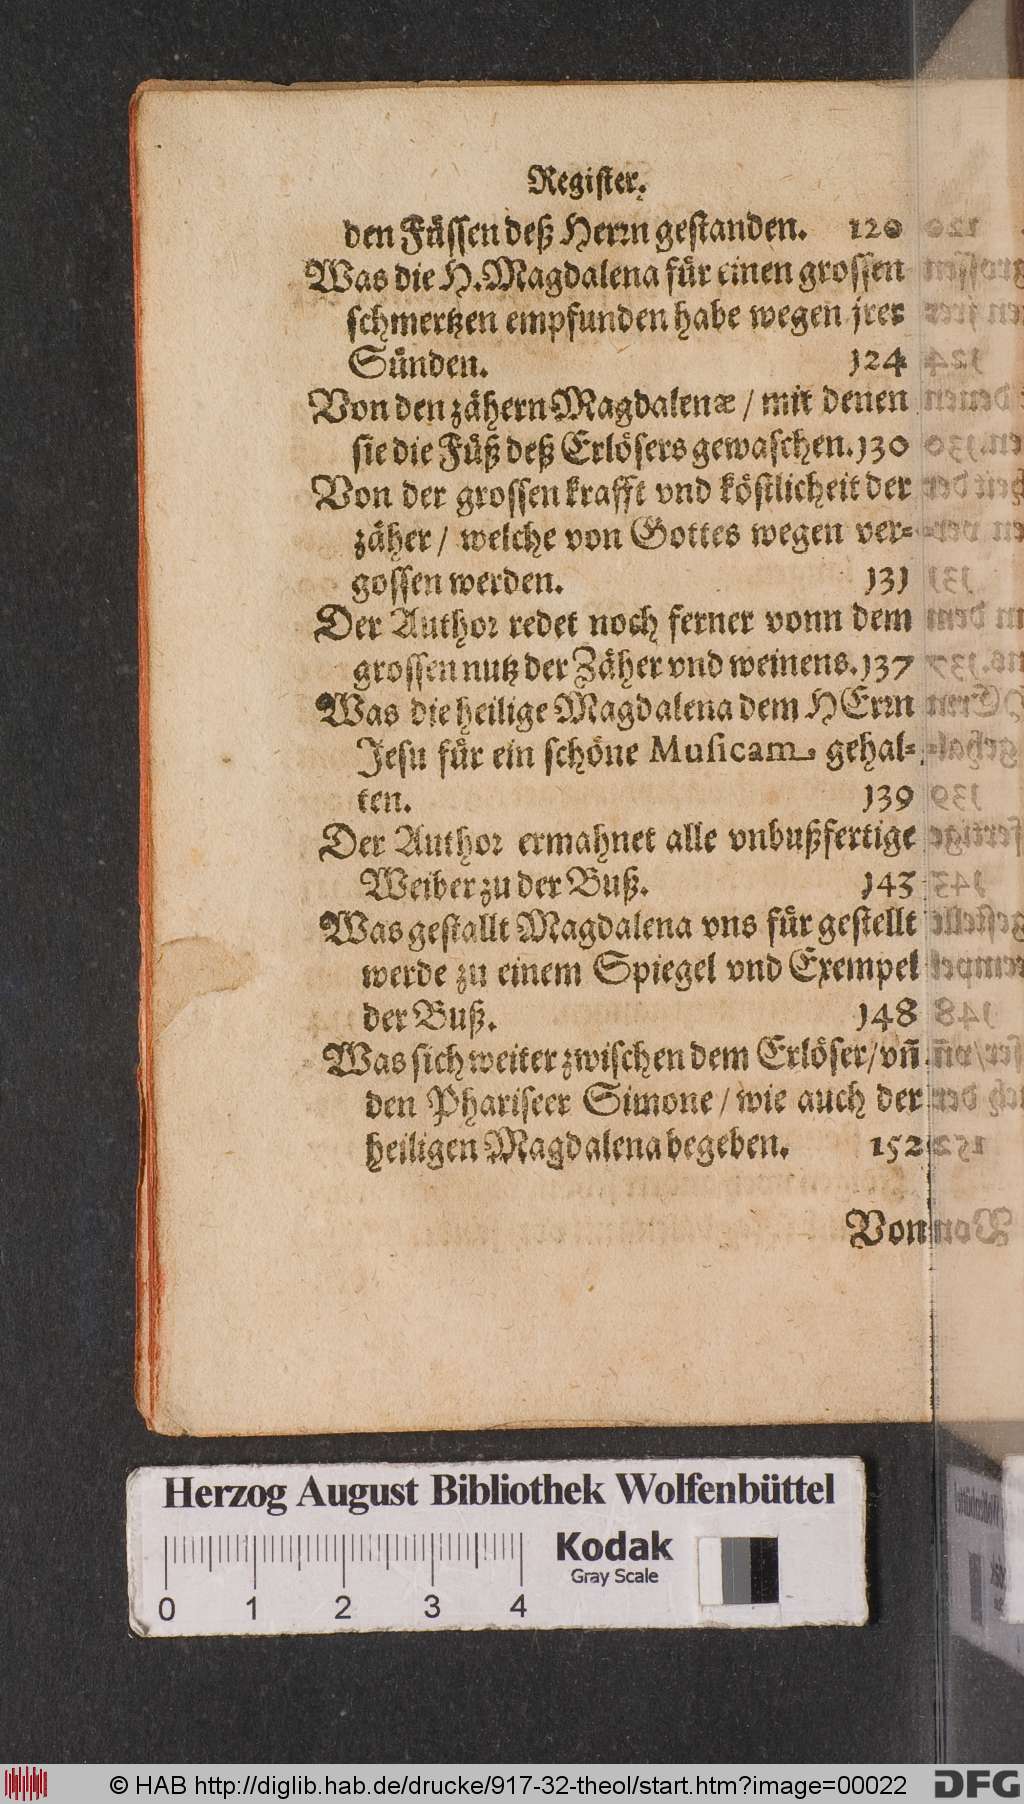 Register.
den Füssen deß Herrn gestanden. 120
Was die H. Magdalena für einen grossen
schmertzen empfunden habe wegen jrer
Sünden. 124
Von den zähern Magdalenæ / mit denen
sie die Füß deß Erlösers gewaschen. 130
Von der grossen krafft vnd köstlicheit der
zäher / welche von Gottes wegen ver-
gossen werden. 131
Der Author redet noch ferner vonn dem
grossen nutz der Zäher vnd weinens. 137
Was die heilige Magdalena dem HErrn
Jesu für ein schöne Musicam gehal-
ten. 139
Der Author ermahnet alle vnbußfertige
Weiber zu der Buß. 143
Was gestallt Magdalena vns für gestellt
werde zu einem Spiegel vnd Exempel
der Buß. 148
Was sich weiter zwischen dem Erlöser / vñ
den Phariseer Simone / wie auch der
heiligen Magdalena begeben. 152
Von
Herzog August Bibliothek Wolfenbüttel
Kodak
Gray Scale
0 1 2 3 4
© HAB http://diglib.hab.de/drucke/917-32-theol/start.htm?image=00022
DFG